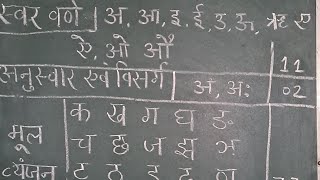 स्वर वर्ण अ, आ, इ, ई, उ, ऊ, ऋ ए
ऐ, ओ औ 11
अनुस्वार एवं विसर्ग अ, अः 02
क ख ग घ ङ
मूल च छ ज झ ञ
व्यंजन ट ठ ड ढ ण